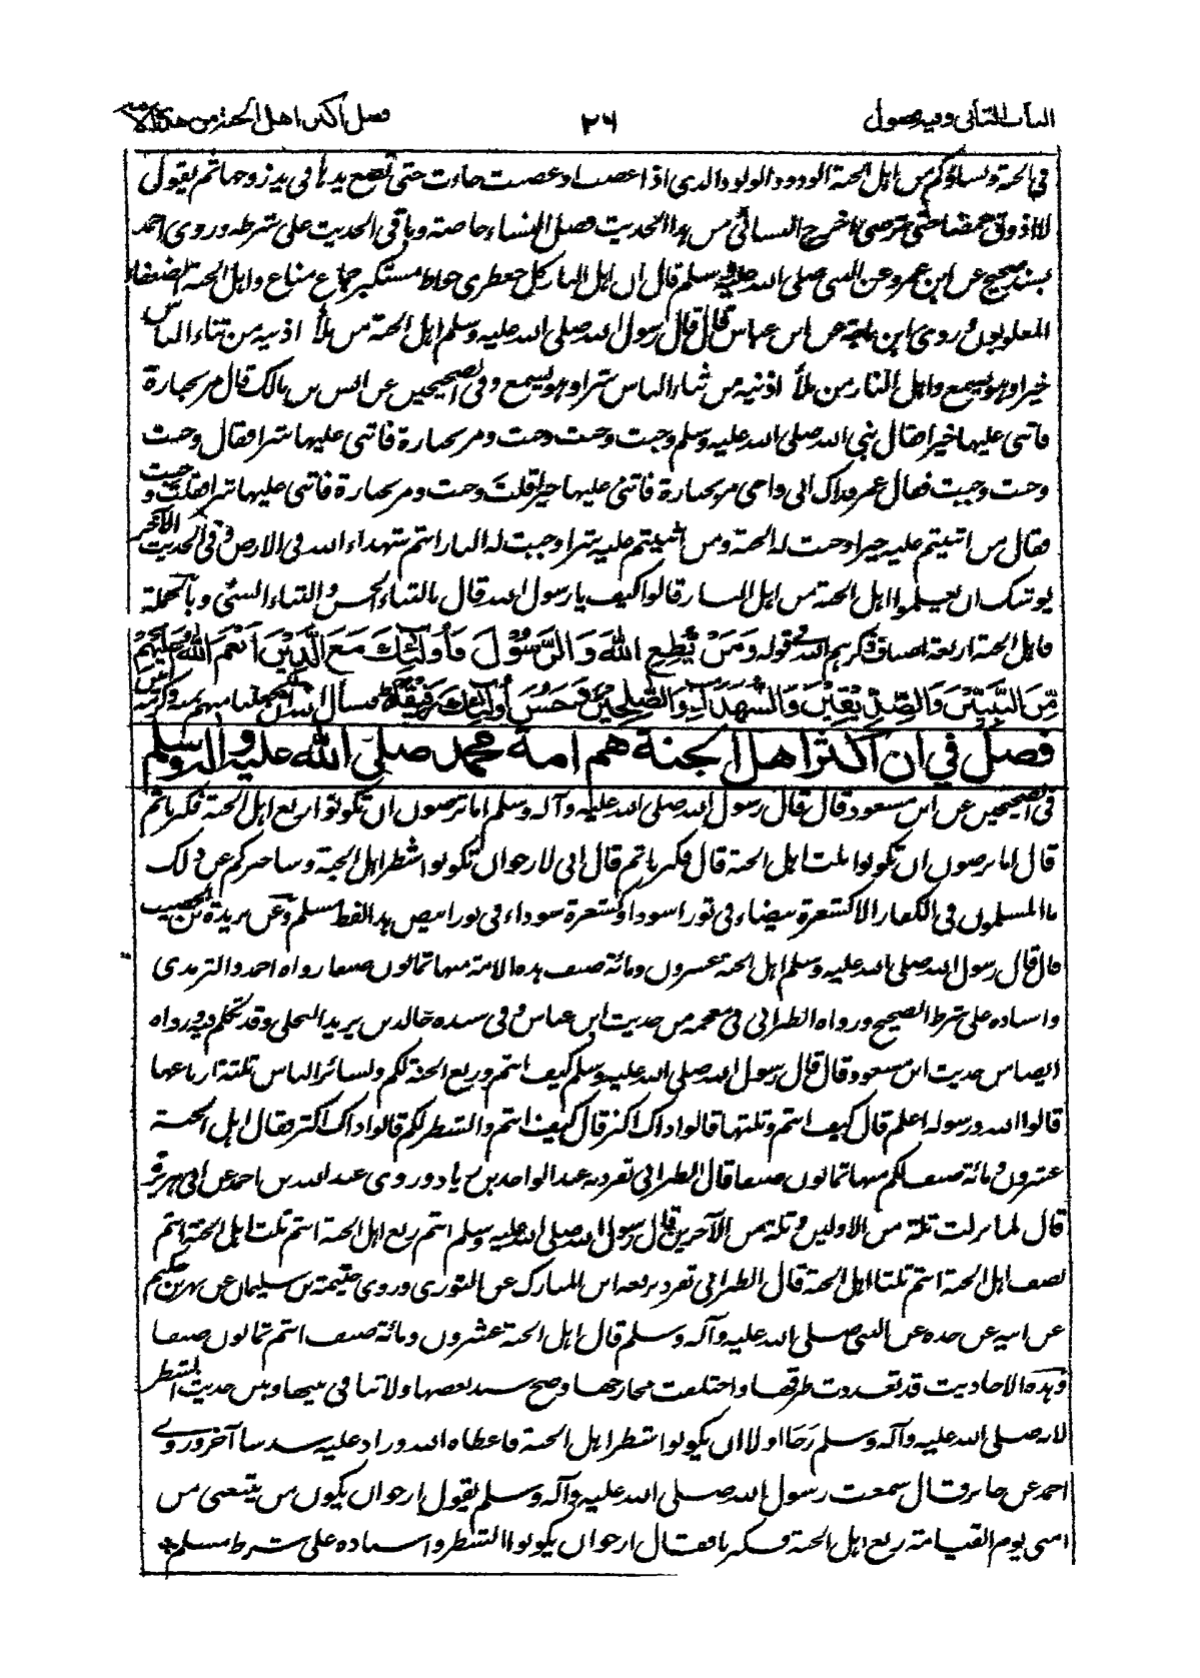 الباب الثاني وفيه فصول ٢٦ فصل أكثر اهل الجنة من هذه الامة
في الجنة ونساؤكم من اهل الجنة الودود الولود التي اذا غضب او غضبت جاءت حتى تضع يدها في يد زوجها ثم تقول
لا اذوق غمضا حتى ترضى اخرج النسائي من هذا الحديث فضل النساء خاصة وباقي الحديث على شرطه وروى احمد
بسند صحيح عن ابن عمرو عن النبي صلى الله عليه وسلم قال ان اهل النار كل جعظري جواظ مستكبر جماع مناع واهل الجنة الضعفاء
المغلوبون وروى ابن ماجة عن ابن عباس قال قال رسول الله صلى الله عليه وسلم اهل الجنة من ملأ اذنيه من ثناء الناس
خيرا وهو يسمع واهل النار من ملأ اذنيه من ثناء الناس شرا وهو يسمع وفي الصحيحين عن انس بن مالك قال مر بجنازة
فاثنى عليها خيرا فقال نبي الله صلى الله عليه وسلم وجبت وجبت وجبت ومر بجنازة فاثنى عليها شرا فقال وجبت
وجبت وجبت فقال عمر فداك ابي وامي مر بجنازة فاثنى عليها خيرا قلت وجبت ومر بجنازة فاثنى عليها شرا فقلت وجبت
فقال من اثنيتم عليه خيرا وجبت له الجنة ومن اثنيتم عليه شرا وجبت له النار انتم شهداء الله في الارض وفي الحديث الآخر
يوشك ان تعلموا اهل الجنة من اهل النار قالوا كيف يا رسول الله قال بالثناء الحسن والثناء السيئ وبالجملة
فاهل الجنة اربعة اصناف ذكرهم الله في قوله وَمَنْ يُطِعِ اللهَ وَالرَّسُوْلَ فَأُولٰئِكَ مَعَ الَّذِيْنَ اَنْعَمَ اللهُ عَلَيْهِمْ
مِّنَ النَّبِيِّيْنَ وَالصِّدِّيْقِيْنَ وَالشُّهَدَآءِ وَالصّٰلِحِيْنَ وَحَسُنَ أُولٰئِكَ رَفِيْقًا فنسأل الله ان يجعلنا منهم بمنه وكرمه امين
فصل في ان اكثر اهل الجنة هم امة محمد صلى الله عليه واله وسلم
في الصحيحين عن ابن مسعود قال قال رسول الله صلى الله عليه وآله وسلم اما ترضون ان تكونوا ربع اهل الجنة فكبرنا ثم
قال اما ترضون ان تكونوا ثلث اهل الجنة قال فكبرنا ثم قال اني لارجو ان تكونوا شطر اهل الجنة وساخبركم عن ذلك
ما المسلمون في الكفار الا كشعرة بيضاء في ثور اسود او كشعرة سوداء في ثور ابيض هذا لفظ مسلم وعن بريدة بن الحصيب
قال قال رسول الله صلى الله عليه وسلم اهل الجنة عشرون ومائة صف هذه الامة منها ثمانون صفا رواه احمد والترمذي
واسناده على شرط الصحيح ورواه الطبراني في معجمه من حديث ابن عباس وفي سنده خالد بن يزيد البجلي وقد تكلم فيه ورواه
ايضا من حديث ابن مسعود قال قال رسول الله صلى الله عليه وسلم كيف انتم وربع الجنة لكم ولسائر الناس ثلثة ارباعها
قالوا الله ورسوله اعلم قال كيف انتم وثلثها قالوا ذاك اكثر قال كيف انتم والشطر لكم قالوا ذاك اكثر فقال اهل الجنة
عشرون ومائة صف لكم منها ثمانون صفا قال الطبراني تفرد به عبد الواحد بن زياد وروى عبد الله بن احمد عن ابي هريرة
قال لما نزلت ثلة من الاولين وثلة من الآخرين قال رسول الله صلى الله عليه وسلم انتم ربع اهل الجنة انتم ثلث اهل الجنة انتم
نصف اهل الجنة انتم ثلثا اهل الجنة قال الطبراني تفرد برفعه ابن المبارك عن الثوري وروى خيثمة بن سليمان عن بهز بن حكيم
عن ابيه عن جده عن النبي صلى الله عليه وآله وسلم قال اهل الجنة عشرون ومائة صف انتم ثمانون صفا
وهذه الاحاديث قد تعددت طرقها واختلفت مخارجها وصح سند بعضها ولا تنافي بينها وبين حديث الشطر
لانه صلى الله عليه وآله وسلم رَجَا اولا ان يكونوا شطر اهل الجنة فاعطاه الله وزاد عليه سدسا آخر وروى
احمد عن جابر قال سمعت رسول الله صلى الله عليه وآله وسلم يقول ارجو ان يكون من يتبعني من
امتي يوم القيامة ربع اهل الجنة فكبرنا فقال ارجو ان يكونوا الشطر واسناده على شرط مسلم